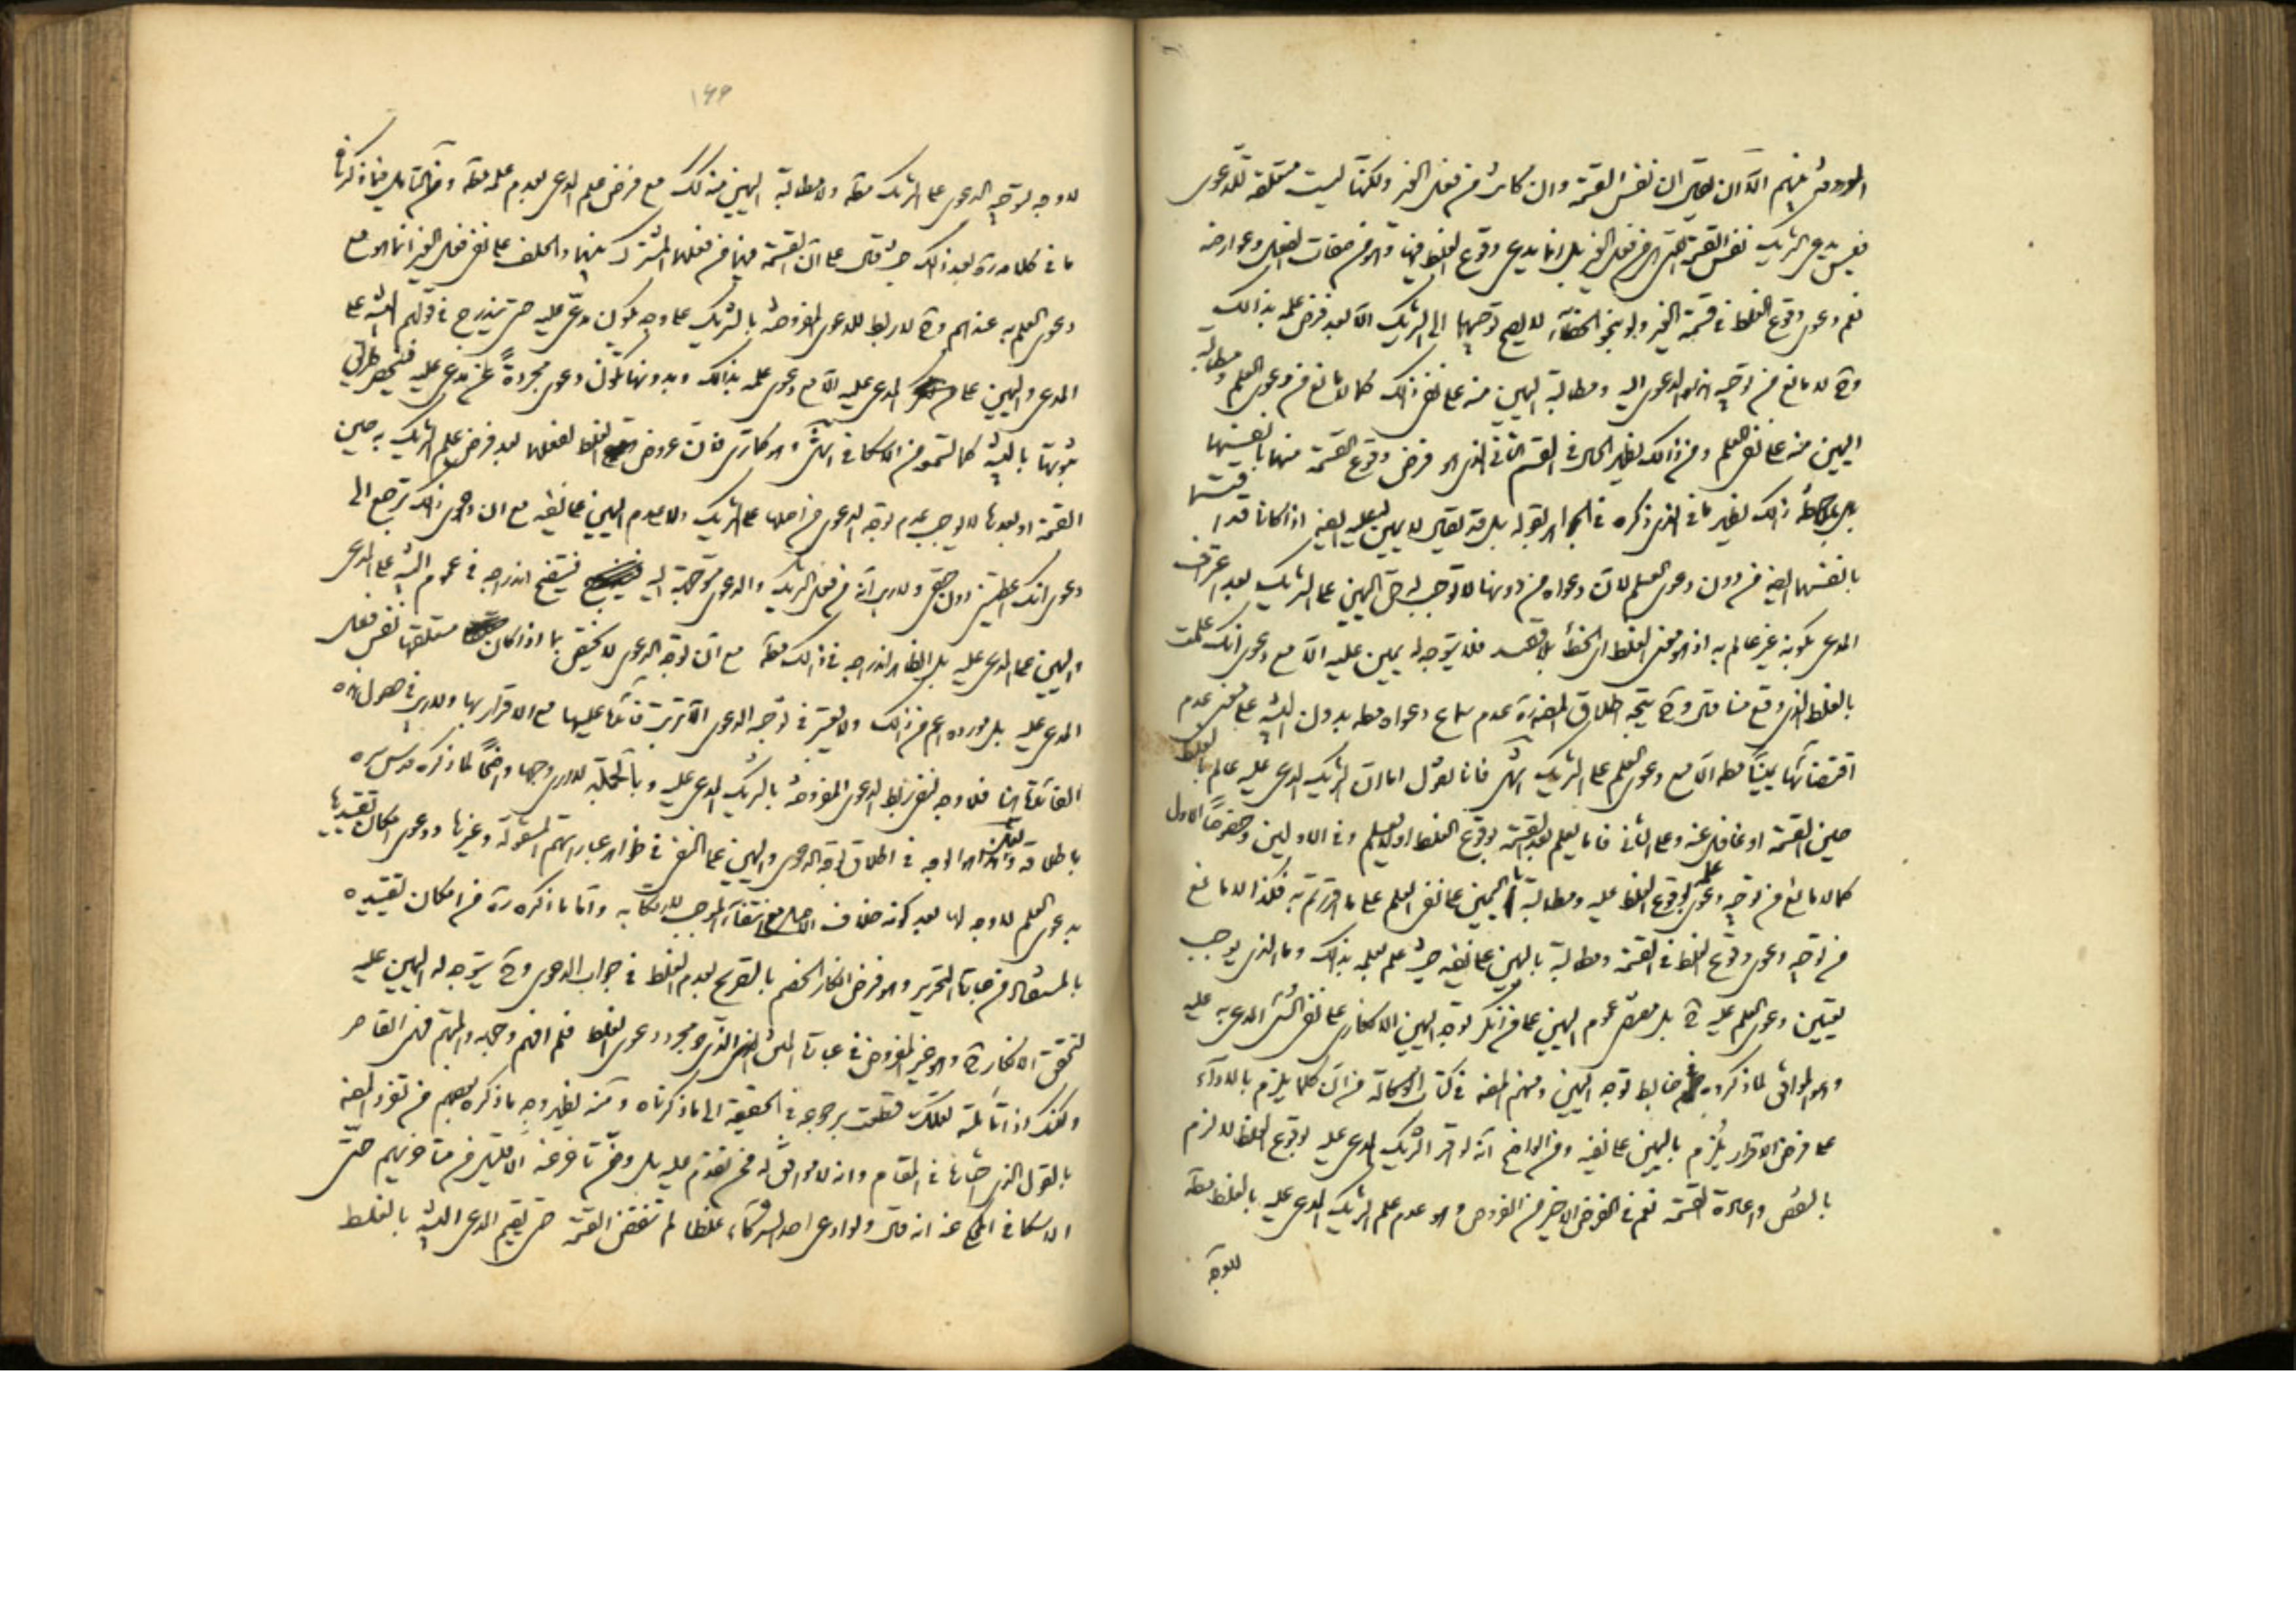 الموروث منهم الّا ان يقال ان نفس القسمة وان كانت من فعل الغير ولكنّها ليست متعلقة للدعوى
فليس يدعى الشريك نفس القسمة التى هى من فعل الغير بل انما يدعى وقوع الغلط فيها وهو من صفات الفعل وعوارضه
نعم دعوى وقوع الغلط فى قسمة الغير ولو بنحو الخطاء لا يصح توجيهها الى الشريك الّا بعد فرض علمه بذالك
وح لا مانع من توجيه الدعوى اليه ومطالبة اليمين منه على نفى ذالك كما لا مانع من دعوى العلم ومطالبة
اليمين منه على نفى العلم ومن ذالك يظهر الحال فى القسم الثانى الذى هو فرض وقوع القسمة منهما بانفسهما
بل بملاحظة ذالك يظهر ما فى الذى ذكره فى الجواهر بقوله بل قد يقال لا يمين له عليه ايضا اذا كانا قد اقتسما
بانفسهما ايضا من دون دعوى العلم لان دعواه من دونها لا توجب له حق اليمين على الشريك بعد اعتراف
المدعى بكونه غير عالم به اذ هو معنى الغلط اى الخطأ بلا قصد فلا يتوجه له يمين عليه الّا مع دعوى انك علمت
بالغلط الذى وقع منا قال وح يتجه اطلاق المصنف ره عدم سماع دعواه مط بدون البينة على معنى عدم
اقتضائها يمينا مط الّا مع دعوى العلم على الشريك انتهى فانا نقول اما ان الشريك المدعى عليه عالم بالغلط
حين القسمة او غافل عنه وعلى الثانى فاما يعلم بعد القسمة بوقوع الغلط او لا يعلم وفى الاولين وخصوصًا الاول
كما لا مانع من توجيه دعوى علم بوقوع الغلط عليه ومطالبة اليمين على نفى العلم على ما اقررتم به فكذا لا مانع
من توجيه دعوى وقوع الغلط فى القسمة ومطالبة باليمين على نفيه حيث علم بعلمه بذالك وما الذى يوجب
تعيين دعوى العلم عليه ح بل مقتضى عموم اليمين على من انكر توجه اليمين الانكارى على نفى الشىء المدعى به عليه
وهو الموافق لما ذكروه فى ضابط توجه اليمين ومنهم المصنف فى كتاب الوكالة من ان كلما يلزم بالاداء
على فرض الاقرار يُلزم باليمين على نفيه ومن الواضح انه لو اقر الشريك المدعى عليه بوقوع الغلط لا لزم
بالنقض واعادة القسمة نعم فى الفرض الاخير من الفروض وهو عدم علم الشريك المدعى عليه بالغلط مط
لا وجه
١٤٩
لا وجه لتوجيه الدعوى على الشريك مط ولا مطالبة اليمين منه لك مع فرض علم المدعى بعدم علمه مط وبالتامل فيما ذكرنا
ما فى كلامه ره بعد ذالك حيث قال على ان القسمة فيهما من فعلهما المشترك بينهما والحلف على نفى فعل الغير انما هو مع
دعوى العلم به عندهم وح لا ربط للدعوى المفروضة بالشريك على وجه يكون مدعى عليه حتى يندرج فى قولهم البينة على
المدعى واليمين على المدعى عليه الّا مع دعوى علمه بذالك وبدونها تكون دعوى مجردةً عن مدعى عليه فتنحصر طريق
ثبوتها بالبينة كما لتموه من الاسكافى انتهى اذ هو كما ترى فان عروض الغلط لفعلهما بعد فرض علم الشريك به حين
القسمة او بعدها لا يوجب عدم توجه الدعوى من اصلها على الشريك ولا عدم اليمين على نفيه مع ان دعوى ذالك ترجع الى
دعوى انك اعطيتنى دون حقى ولا ريب انه من فعل الشريك والدعوى متوجهة اليه فيتضح اندراجه فى عموم البينة على المدعى
واليمين على المدعى عليه بل الظاهر اندراجه فى ذالك مط مع ان توجه الدعوى لا يختص بما اذا كان متعلقها نفس فعل
المدعى عليه بل مورده اعم من ذالك ولا يعتبر فى توجه الدعوى الّا ترتب فائدة عليها مع الاقرار بها ولا ريب فى حصول هذه
الفائدة هنا فلا وجه لنفى ربط الدعوى المفروضة بالشريك المدعى عليه وبالجملة لا ارى وجها واضحًا لما ذكره قدس سره
باطلاقه ولعل الوجه فى اطلاق توجه الدعوى واليمين على النفى فى ظواهر عباراتهم المنقولة وغيرها ودعوى امكان تقييدها
بدعوى العلم لا وجه لها بعد كونه خلاف الاصل مع انتفاء الموجب لارتكابه واما ما ذكره ره من امكان تقييده
بالمستفاد من عبارة التحرير وهو فرض انكار الخصم بالتصريح بعدم الغلط فى جواب الدعوى وح يتوجه له اليمين عليه
لتحقق الانكار ح وهو غير المفروض فى عبارة المتن الذى هو مجرد دعوى الغلط فلم افهم وجهه والمتهم فهمى القاصر
ولكنك اذا تاملته لعلك قطعت برجوعه فى الحقيقة الى ما ذكرناه ومنه يظهر وجه ما ذكره بعضهم من تفرد المصنف
بالقول الذى اختاره فى المقام وانه لا موافق له فيمن تقدم عليه بل وفى تاخر عنه الّا قليل من متاخريهم حتى
الاسكافى المحكى عنه انه قال ولو ادعى احد الشركاء غلطا لم تنقض القسمة حتى يقيم المدعى البينة بالغلط